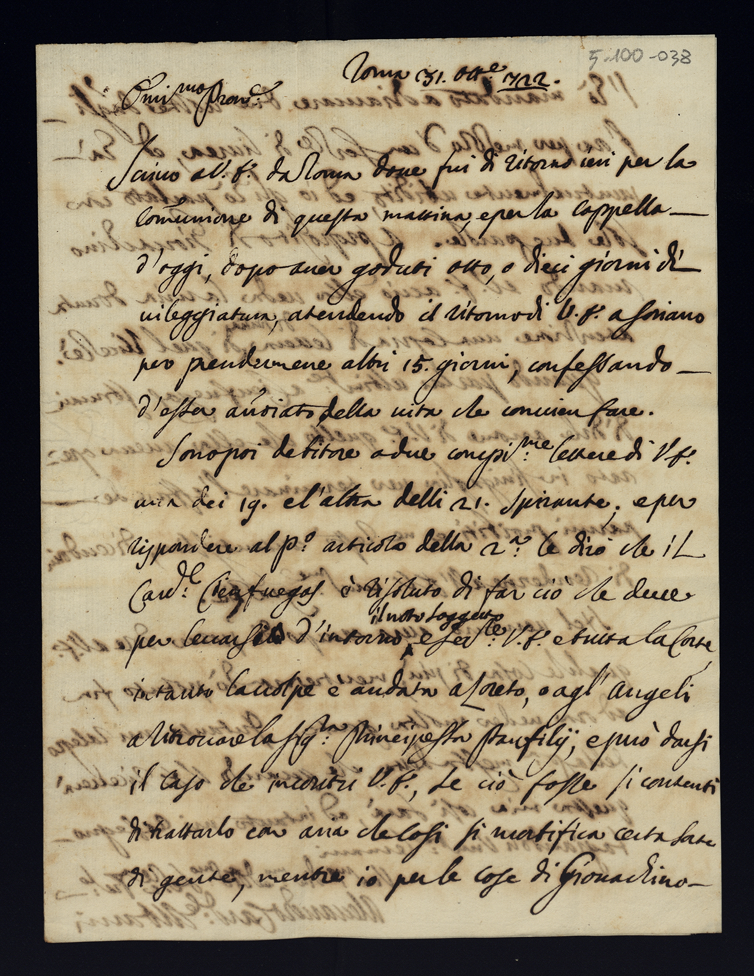 5-100-038
Roma 31. ott.e 722.
Em.mo Pron.e
Scrivo a V. E. da Roma dove fui di ritorno ieri per la
comunione di questa mattina, e per la Cappella
d'oggi, dopo aver goduti otto, o dieci giorni di
villeggiatura, attendendo il ritorno di V. E. a Soriano
per prendermene altri 15. giorni, confessando
d'esser della vita che convien fare.
Sono poi debitore a due compi.me lettere di V. E.
una dei 19. e l'altra delli 21. spirante, e per
rispondere al p.o articolo della 2.a le dirò che il
Card.l Cienfuegos è risoluto di far ciò che deve
il noto soggetto
per levarsi d'intorno, e V. E. e tutta la Corte,
intanto la volpe è andata a Loreto, o agl'Angeli
a ritrovare la Sig.ra Principessa Panfilij, e può darsi
il caso che incontri V. E., se ciò fosse si contenti
di trattarlo con aria che così si mortifica certa sorte
di gente, mentre io per le cose di Giovachino